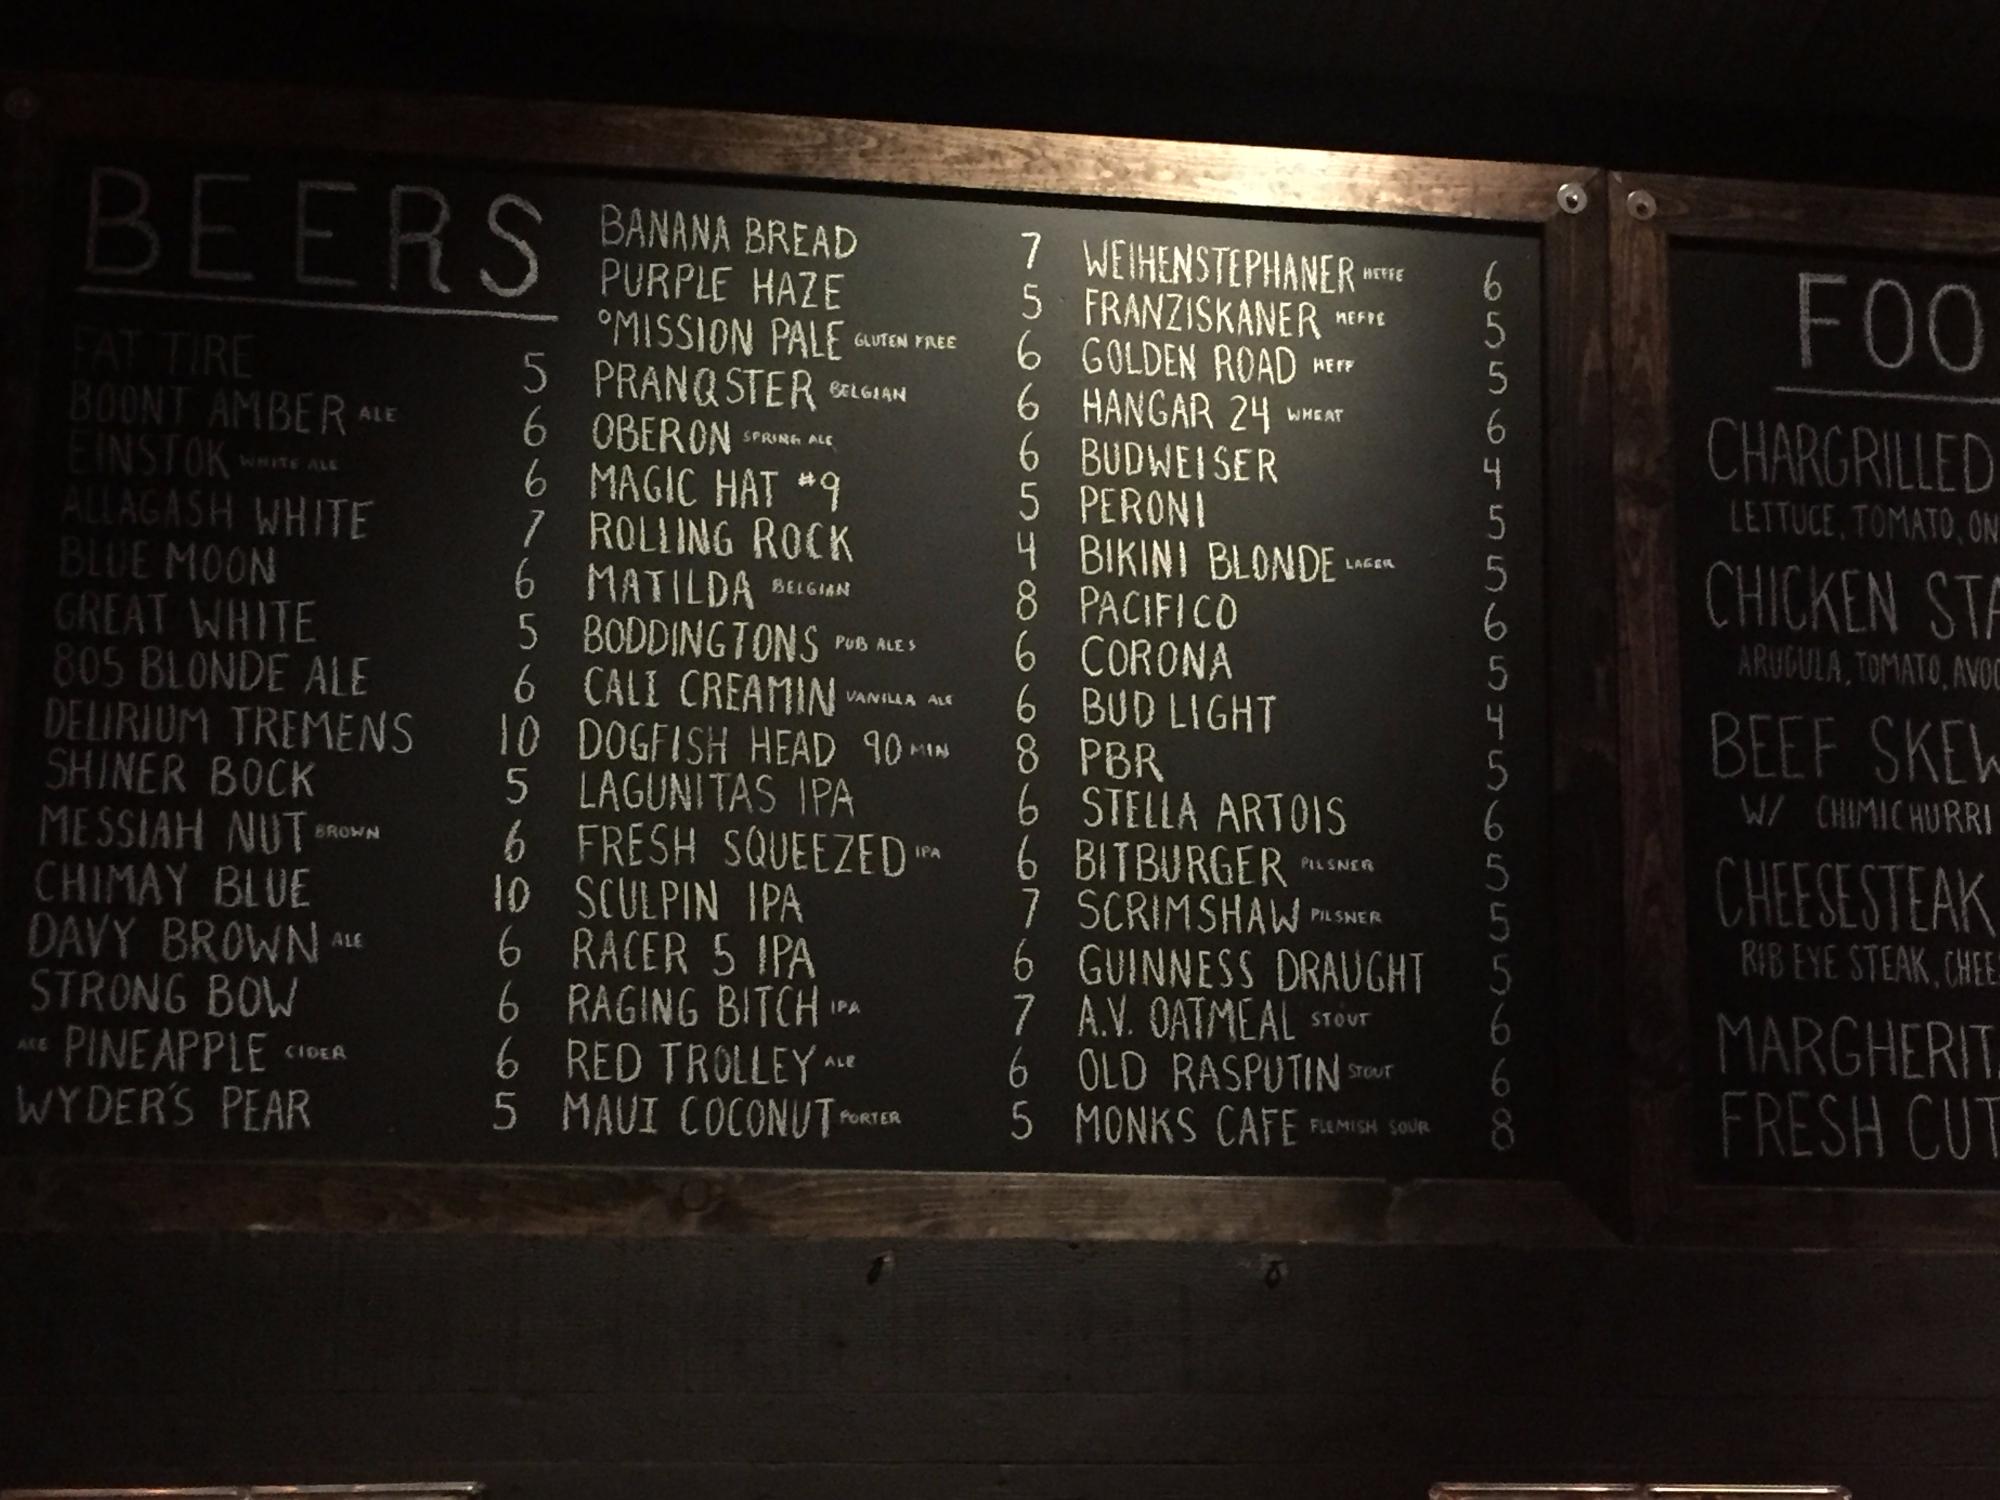 BEERS
FAT TIRE 5
BOONT AMBER ALE 6
EINSTOK WHITE ALE 6
ALLAGASH WHITE 7
BLUE MOON 6
GREAT WHITE 5
805 BLONDE ALE 6
DELIRIUM TREMENS 10
SHINER BOCK 5
MESSIAH NUT BROWN 6
CHIMAY BLUE 10
DAVY BROWN ALE 6
STRONG BOW 6
ACE PINEAPPLE CIDER 6
WYDER'S PEAR 5
BANANA BREAD 7
PURPLE HAZE 5
°MISSION PALE GLUTEN FREE 6
PRANQSTER BELGIAN 6
OBERON SPRING ALE 6
MAGIC HAT #9 5
ROLLING ROCK 4
MATILDA BELGIAN 8
BODDINGTONS PUB ALES 6
CALI CREAMIN VANILLA ALE 6
DOGFISH HEAD 90 MIN 8
LAGUNITAS IPA 6
FRESH SQUEEZED IPA 6
SCULPIN IPA 7
RACER 5 IPA 6
RAGING BITCH IPA 7
RED TROLLEY ALE 6
MAUI COCONUT PORTER 5
WEIHENSTEPHANER HEFFE 6
FRANZISKANER HEFFE 5
GOLDEN ROAD HEFF 5
HANGAR 24 WHEAT 6
BUDWEISER 4
PERONI 5
BIKINI BLONDE LAGER 5
PACIFICO 6
CORONA 5
BUD LIGHT 4
PBR 5
STELLA ARTOIS 6
BITBURGER PILSNER 5
SCRIMSHAW PILSNER 5
GUINNESS DRAUGHT 5
A.V. OATMEAL STOUT 6
OLD RASPUTIN STOUT 6
MONKS CAFE FLEMISH SOUR 8
FOO
CHARGRILLED
LETTUCE, TOMATO, ON
CHICKEN STA
ARUGULA, TOMATO, AVOC
BEEF SKEW
W/ CHIMICHURRI
CHEESESTEAK
RIB EYE STEAK, CHEE
MARGHERIT
FRESH CUT